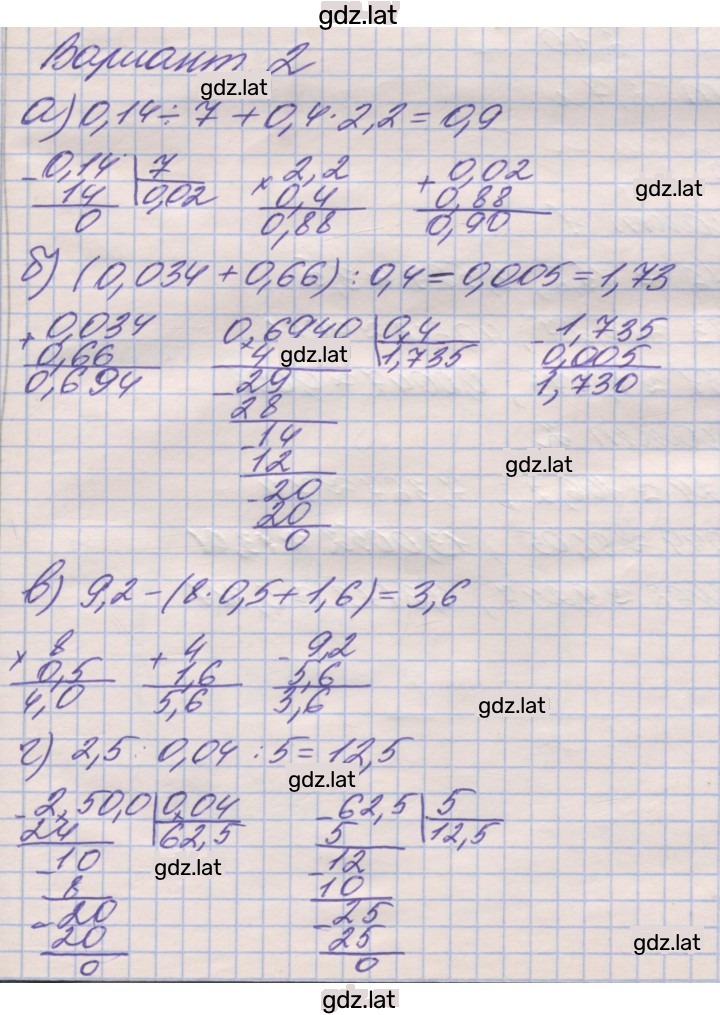 gdz.lat
Вариант 2
gdz.lat
а) 0,14 ÷ 7 + 0,4 · 2,2 = 0,9
- 0,14 | 7 × 2,2 + 0,02
14 | 0,02 0,4 0,88 gdz.lat
0 0,88 0,90
б) (0,034 + 0,66) : 0,4 = 0,005 = 1,73
+ 0,034 0,6940 | 0,4 - 1,735
0,66 4 gdz.lat | 1,735 0,005
0,694 - 29 1,730
28
- 14
12 gdz.lat
- 20
20
0
в) 9,2 - (8 · 0,5 + 1,6) = 3,6
× 8 + 4 - 9,2
0,5 1,6 5,6
4,0 5,6 3,6 gdz.lat
г) 2,5 : 0,04 : 5 = 12,5
gdz.lat
- 2,50,0 | 0,04 - 62,5 | 5
24 | 62,5 5 | 12,5
- 10 gdz.lat - 12
8 10
- 20 - 25
20 25 gdz.lat
0 0
gdz.lat